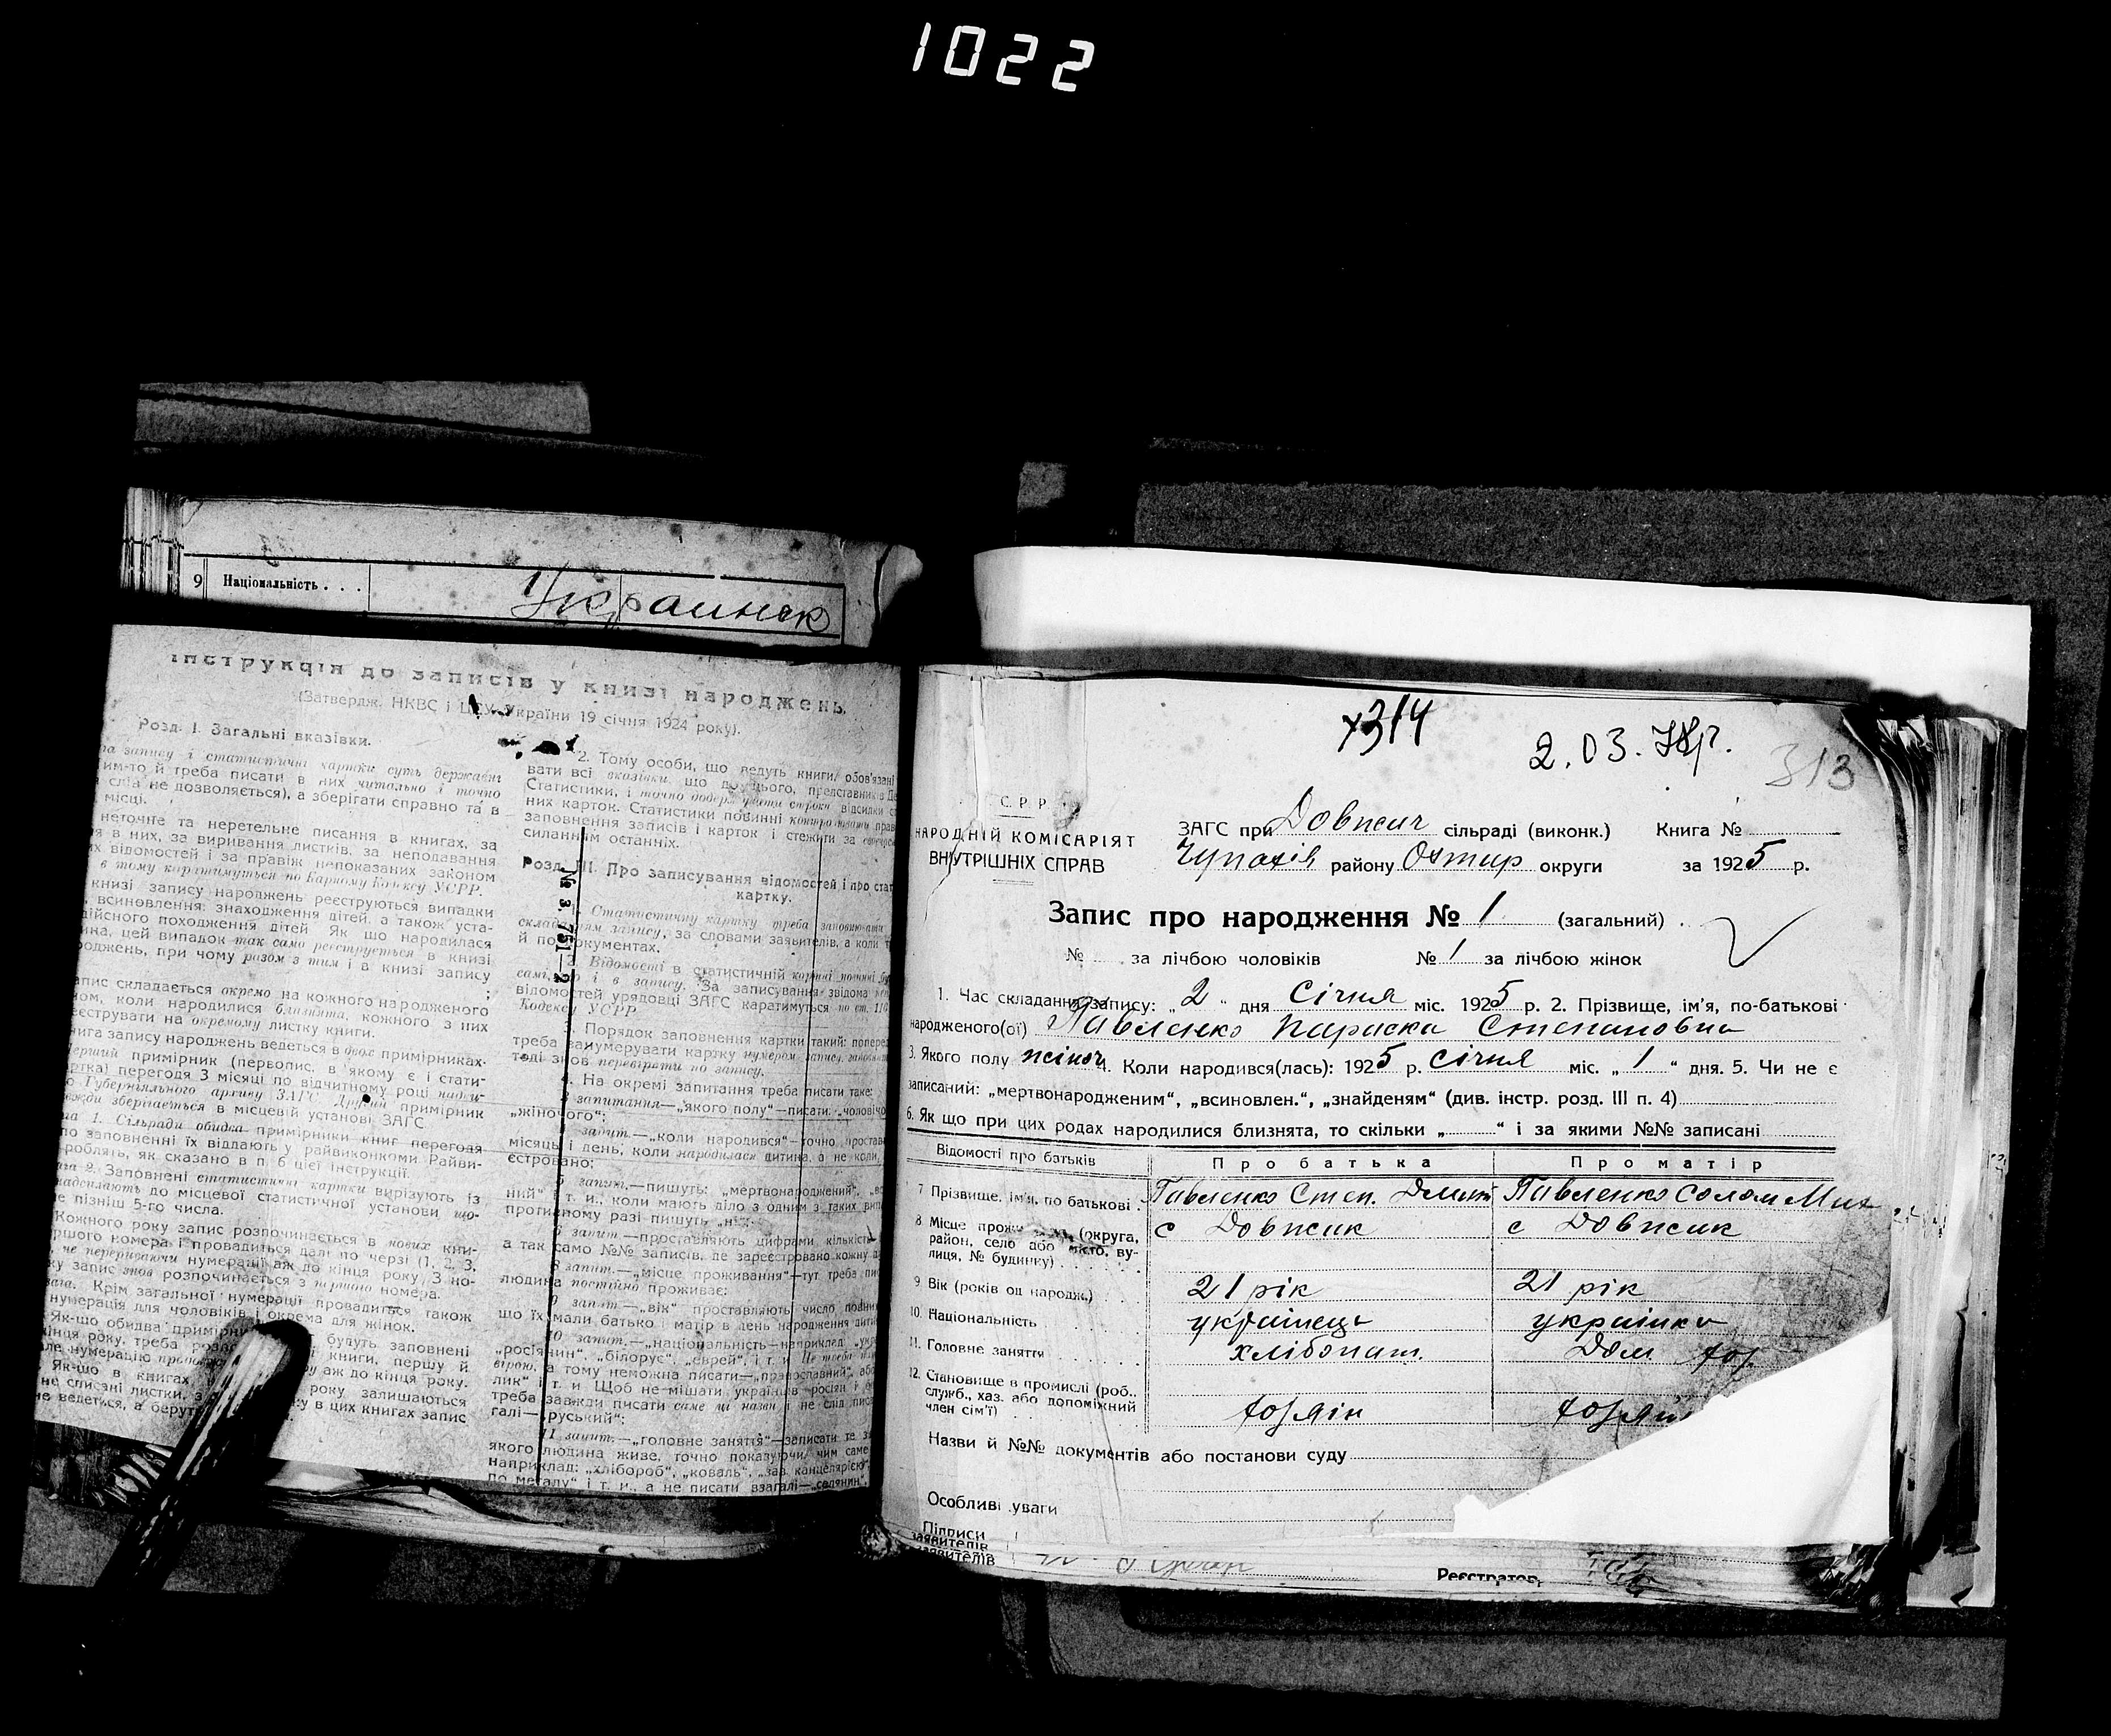 1022
9 Національність . . . Украинск
Інструкція до записів у книзі народжень.
(Затвердж. НКВС і ЦСУ України 19 січня 1924 року).
Розд. I. Загальні вказівки.
запису і статистичні картки суть державні
й треба писати в них читально і точно
не дозволяється), а зберігати справно та в
місці.
неточне та неретельне писання в книгах, за
в них, за виривання листків, за неподавання
відомостей і за правіж непоказаних законом
в тому каратимуться по Карному Кодексу УСРР.
книзі запису народжень реєструються випадки
всиновлення, знаходження дітей, а також уста-
дійсного походження дітей. Як що народилася
цей випадок так само реєструється в книзі
при чому разом з тим і в книзі запису
складається окремо на кожного народженого
коли народилися близнята, кожного з них
на окремому листку книги.
запису народжень ведеться в двох примірниках.
примірник (первопис, в якому є і стати-
перегодя 3 місяці по відчитному році
Губерніяльного архиву ЗАГС. Другий примірник
зберігається в місцевій установі ЗАГС
1. Сільради обидва примірники книг перегодя
заповненні їх віддають у райвиконкоми. Райви-
роблять, як сказано в п. 6 цієї інструкції.
2. Заповнені статистичні картки вирізують із
до місцевої статистичної установи що-
пізніш 5-го числа.
Кожного року запис розпочинається в нових кни-
номера і провадиться далі по черзі (1, 2, 3,
не перериваючи нумерації аж до кінця року. З но-
запис знов розпочинається з першого номера.
Крім загальної нумерації провадиться також
нумерація для чоловіків і окрема для жінок.
Як-що обидва будуть заповнені
року, треба книги, першу й
нумерацію аж до кінця року.
Як-що в книгах, року залишаються
листки, в цих книгах запис
не ведеться, а беруть
2. Тому особи, що ведуть книги, обов'язані
вати всі вказівки, що до цього, представників
Статистики, і точно
них карток. Статистики повинні контролювати
заповнення записів і карток і стежити за
силанням останніх.
Розд. III. Про записування відомостей і про
картку.
Статистичну картку треба заповнювати
запису, за словами заявителів, а коли
й по документах.
2. Відомості в статистичній картці повинні
самі, що і в запису. За записування звідома
відомостей урядовці ЗАГС каратимуться по ст.
Кодексу УСРР.
Порядок заповнення картки такий:
треба занумерувати картку нумером запису,
тоді знов перевірити по запису.
На окремі запитання треба писати так:
3 запитання—„якого полу“—писати:
„жіночого“;
запит.—„коли народився“—точно
місяць і день, коли народилася дитина, а не коли,
єстровано;
запит.—пишуть: „мертвонароджений“,
ний“ і т. и., коли мають діло з одним з таких
противному разі пишуть „ні“;
6 запит—проставляють цифрами, кількість
а так само №№ записів, де зареєстровано кожну
8 запит.—„місце проживання“—тут треба
людина постійно проживає;
9 запит—„вік“ проставляють число
що їх мали батько і матір в день народження
10 запит.—„національність—наприклад
„росіянин“, „білорус“, „еврей“, і т. и.
вірою, а тому неможна писати—„православний“,
лик“ і т. и Щоб не мішати українців росіян і
треба завжди писати саме ці назви і не слід
галі—„руський“;
11 запит.—„головне заняття“—записати те
якого людина живе, точно показуючи чим саме
наприклад: „хлібороб“, „коваль“, „зав. канцелярією“
по металу“ і т. и., а не писати взагалі—„селянин“
№ з. 751—2
314
2.03. Укр.
313
С. Р. Р
НАРОДНІЙ КОМІСАРІЯТ
ВНУТРІШНІХ СПРАВ
ЗАГС при Довжич сільраді (виконк.) Книга №
Чупахів району Охтир округи за 1925 р.
Запис про народження № 1 (загальний)
№ за лічбою чоловіків № 1 за лічбою жінок
1. Час складання запису: „2“ дня Січня міс. 1925 р. 2. Прізвище, ім'я, по-батькові
народженого(ої) Павленко Параска Степановна
3. Якого полу жіноч 4. Коли народився(лась): 1925 р. січня міс. „1“ дня. 5. Чи не є
записаний: „мертвонародженим“, „всиновлен.“, „знайденям“ (див. інстр. розд. III п. 4)
6. Як що при цих родах народилися близнята, то скільки „ “ і за якими №№ записані
Відомості про батьків Про батька Про матір
7 Прізвище, ім'я, по батькові . Павленко Степ. Дмит Павленко Солом Мих
8. Місце прожи (округа, с Довжик с Довжик
район, село або місто, ву-
лиця, № будинку)
9. Вік (років од народж.) 21 рік 21 рік
10. Національність українець українка
11. Головне заняття хлібопаш. Дом хоз.
12. Становище в промислі (роб.,
служб., хаз. або допоміжний
член сім'ї) хозяїн хозяй
Назви й №№ документів або постанови суду
Особливі уваги
Підписи
заявителів
заявителів
Реєстратор